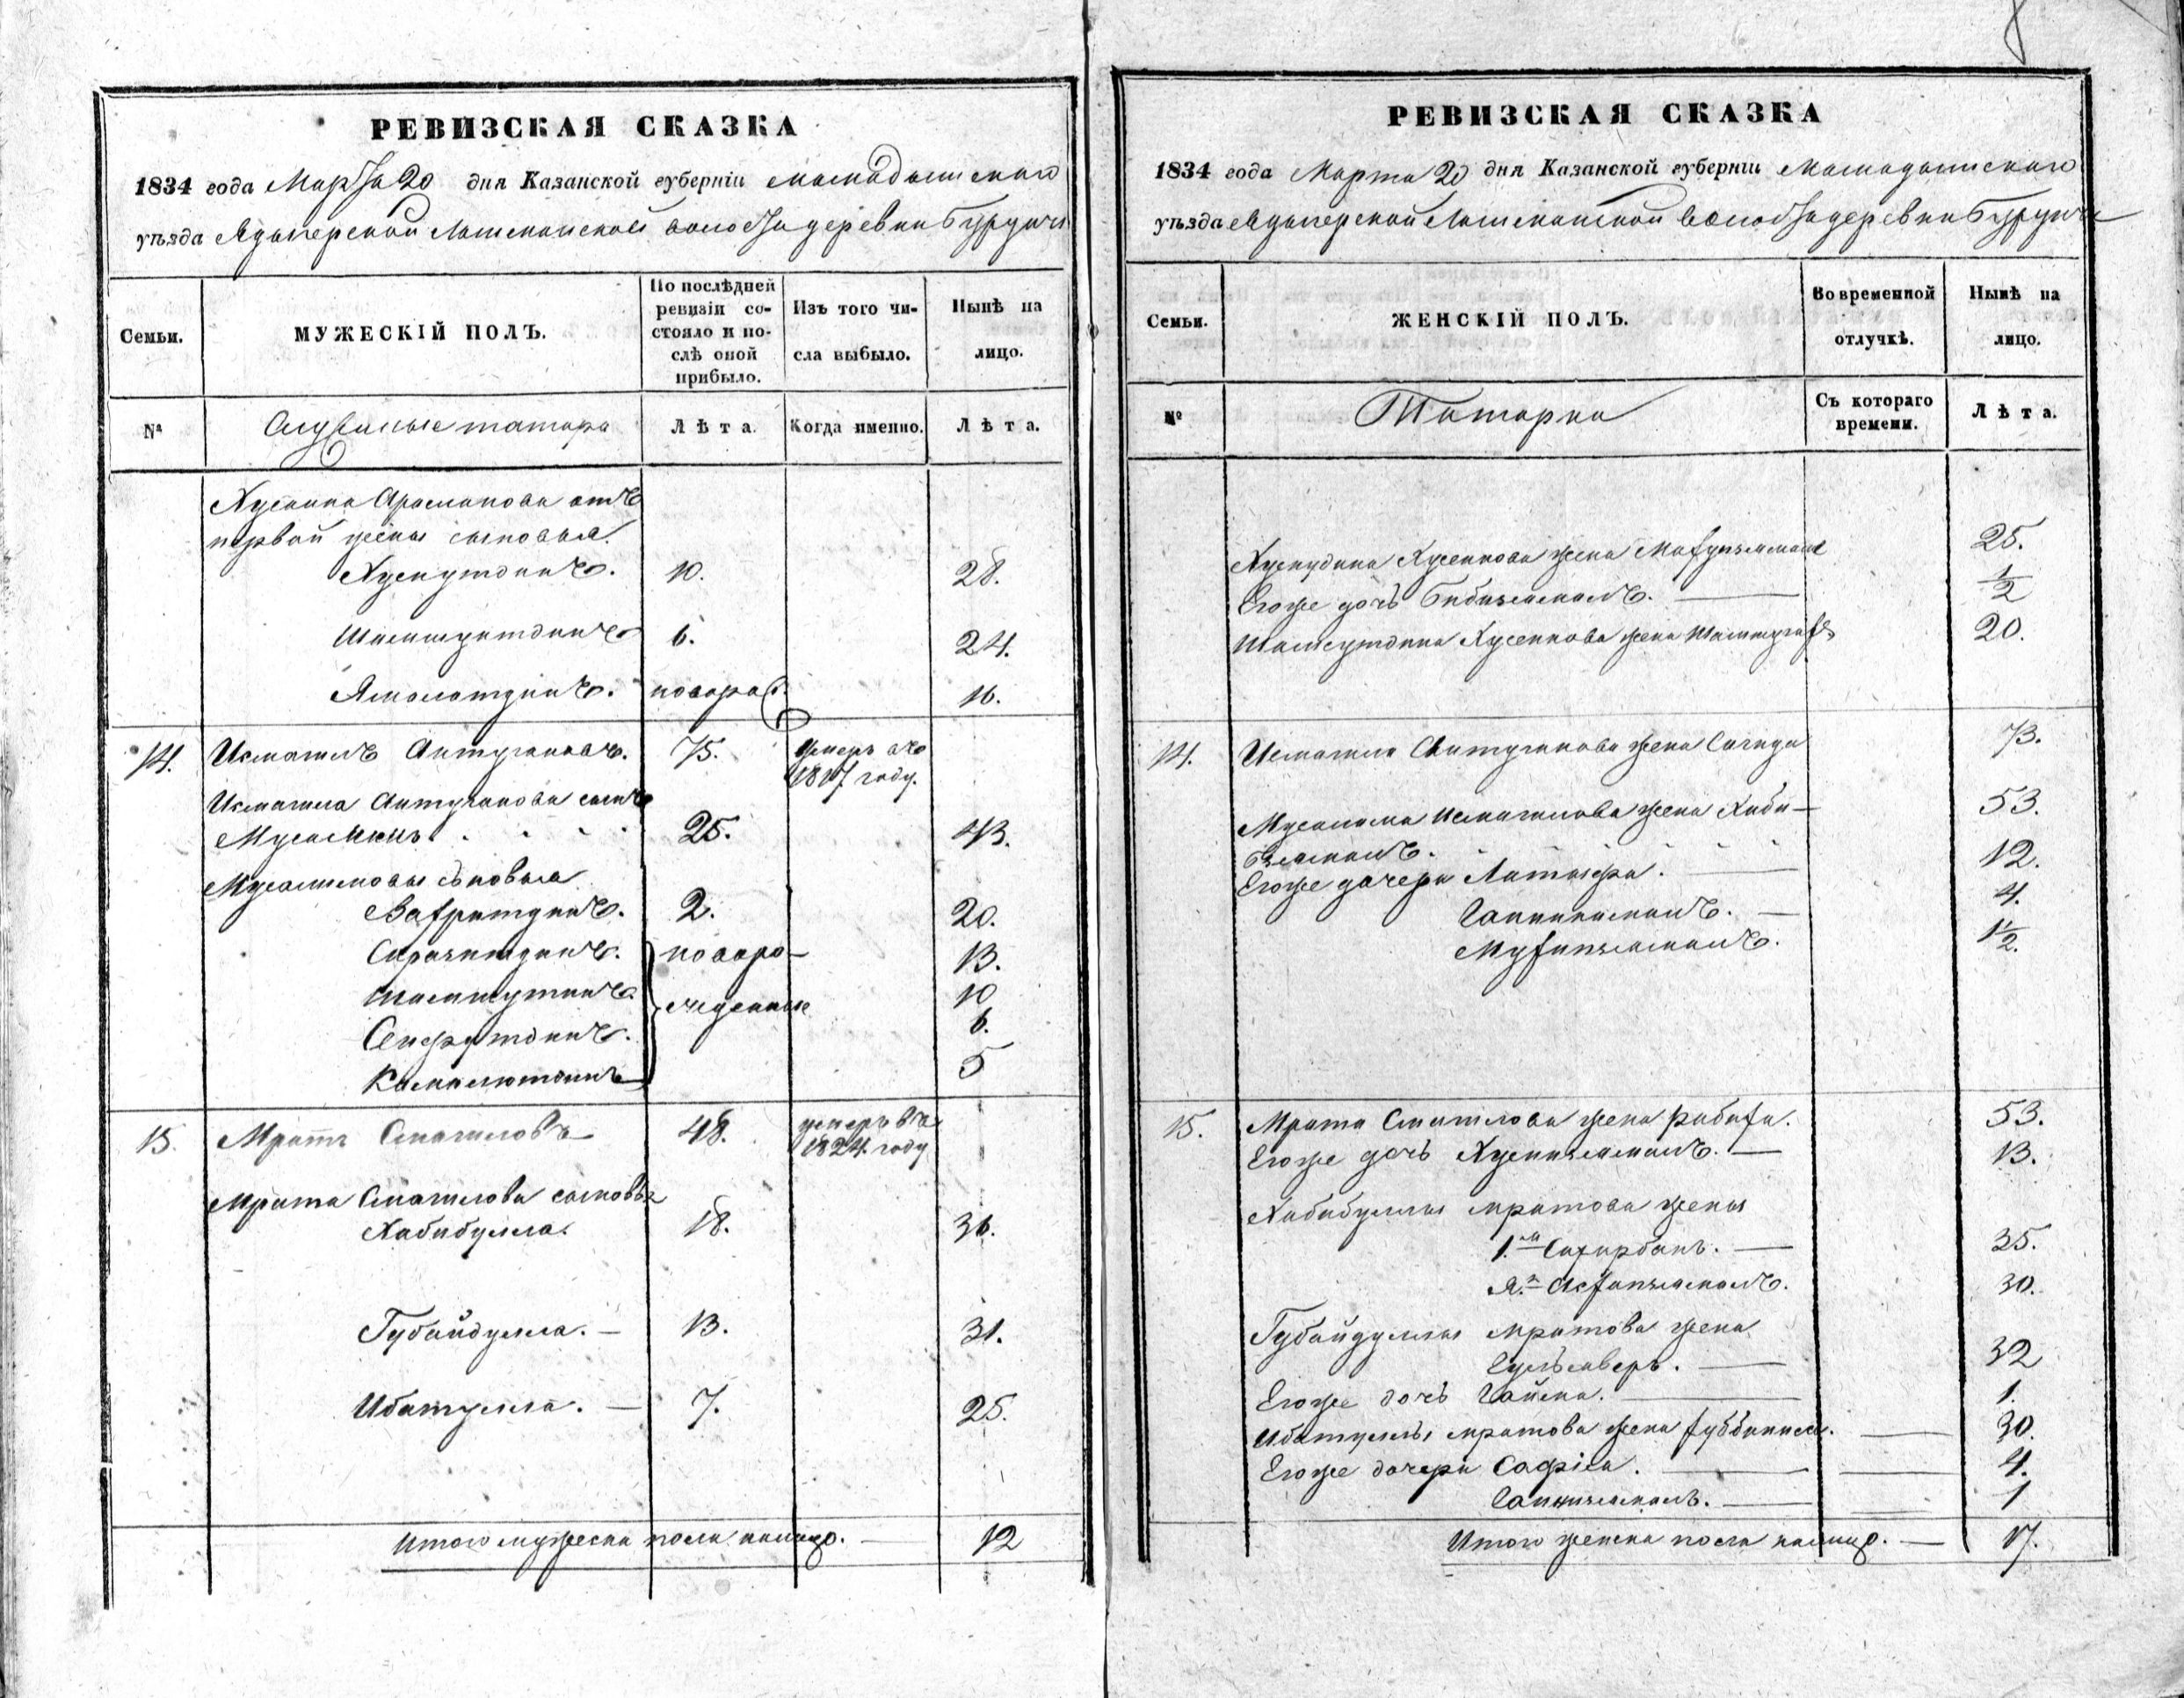 РЕВИЗСКАЯ СКАЗКА
1834 года Марта 20 дня Казанской губерніи Мамадышскаго
уѣзда Адыперской Лашманской волости деревни Бурунчи
Семьи.
МУЖЕСКІЙ ПОЛЪ.
По послѣдней
ревизіи со-
стояло и по-
слѣ оной
прибыло.
Изъ того чи-
сла выбыло.
Нынѣ на
лицо.
№
Служилые татара
Лѣта.
Когда именно.
Лѣта.
Хусаина Арасланова отъ
первой жены сыновья
Хуснутдинъ. 10. 28.
Шамшутдинъ 6. 24.
Ямалотдинъ. новорож. 16.
14. Исмагилъ Аитугановъ. 75. умеръ въ
1817 году.
Исмагила Аитуганова сынъ
Мусалимъ 25. 43.
Мусалимовы сыновья
Зафритдинъ. 2. 20.
Сиразитдинъ. новоро- 13.
Шамшутдинъ. жденные 10
Сейфутдинъ. 6.
Камалютдинъ 5
15. Мратъ Смагиловъ 48. умеръ въ
1824 году
Мрата Смагилова сыновья
Хабибулла. 18. 36.
Губайдулла. 13. 31.
Ибатулла. 7. 25.
Итого мужеска пола налицо. 12
РЕВИЗСКАЯ СКАЗКА
1834 года Марта 20 дня Казанской губерніи Мамадышскаго
уѣзда Адыперской Лашманской волости деревни Бурунчи
Семьи.
ЖЕНСКІЙ ПОЛЪ.
Во временной
отлучкѣ.
Нынѣ на
лицо.
№
Татарки
Съ котораго
времени.
Лѣта.
Хуснудина Хусеинова жена 25.
Егоже дочь Бибизямалъ. 1/2
Шамсутдина Хусеинова жена 20.
14. Исмагила Аитуганова жена Сагида 73.
Мусалима Исмагилова жена Хаби- 53.
бзямалъ.
Егоже дочери Латыфа. 12.
4.
1 1/2.
15. Мрата Смагилова жена Рабига. 53.
Егоже дочь Хуснизямалъ. 13.
Хабибуллы мратова жены
1.я 35.
2.я 30.
Губайдуллы мратова жена
32
Егоже дочь Гайша. 1.
Ибатуллы мратова жена 30.
Егоже дочери Сафія. 4.
1
Итого женска пола налицо. 17.